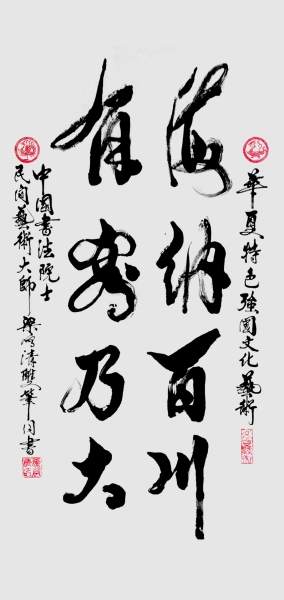 華夏特色強國文化藝術
海納百川
有容乃大
中國書法院士
民间藝術大師梁鸿清雙筆同書